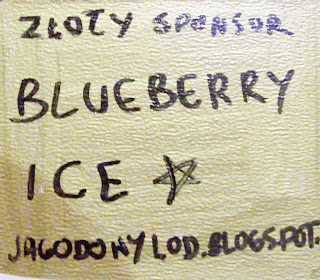 ZŁOTY SPONSOR
BLUEBERRY
ICE
JAGODOWYLOD.BLOGSPOT.